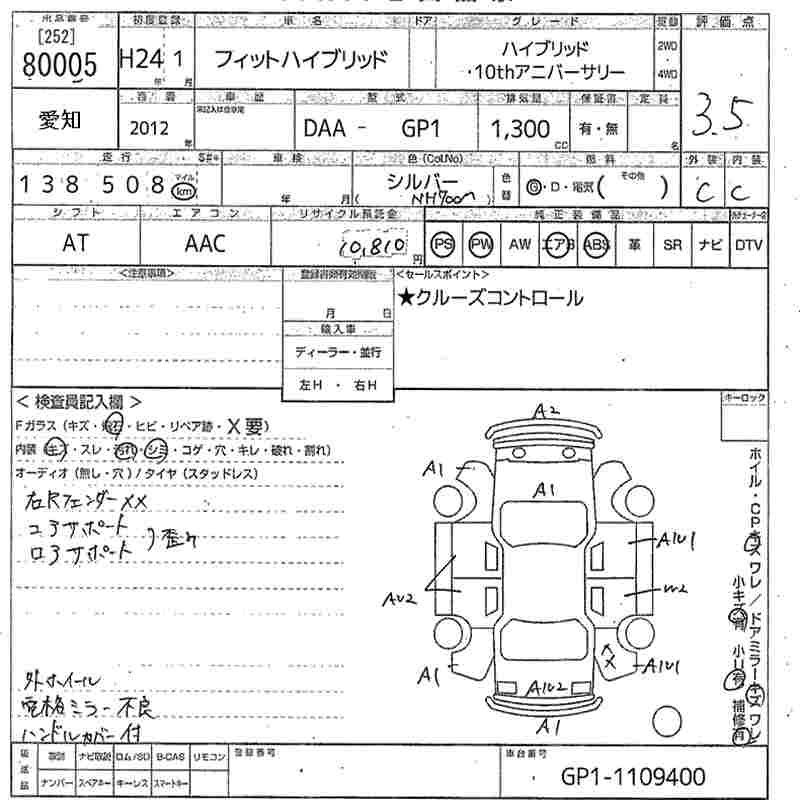 出品番号 初度登録 車名 ドア グレード 評価点
[252]
80005 H24 1 フィットハイブリッド ハイブリッド 2WD
・10thアニバーサリー 4WD
年 月
3.5
愛知 車歴 型式 排気量 保証書 定員
2012 DAA - GP1 1,300 有・無
年 CC 名
走行 車検 色(Col.No) 燃料 外装 内装
138508 マイル km 年 月 シルバー 色替 G・D・電気( その他 ) C C
( NH700M )
シフト エアコン リサイクル預託金 純正装備品
AT AAC 10,810 円 PS PW AW エアB ABS 革 SR ナビ DTV
<注意事項> <セールスポイント>
★クルーズコントロール
月 日
輸入車
ディーラー・並行
左H ・ 右H
<検査員記入欄> キーロック
Fガラス(キズ・飛石・ヒビ・リペア跡・X要)
内装(キズ・スレ・汚れ・シミ・コゲ・穴・キレ・破れ・割れ)
オーディオ(無し・穴)/タイヤ(スタッドレス)
右Rフェンダー XX
コアサポート
ロアサポート 歪み
外ホイール
電格ミラー不良
ハンドルカバー付
A2
A1
A1
A1U1
AU2
U2
A1
X
X
A1U1
A1U2
A1
ホイル・CPキズ ワレ/ドアミラーキズ ワレ
小キズ有 小U有 補修有
後送品 ナビ取説 ロム/SD B-CAS リモコン 登録番号 車台番号
ナンバー スペアキー キーレス スマートキー GP1-1109400